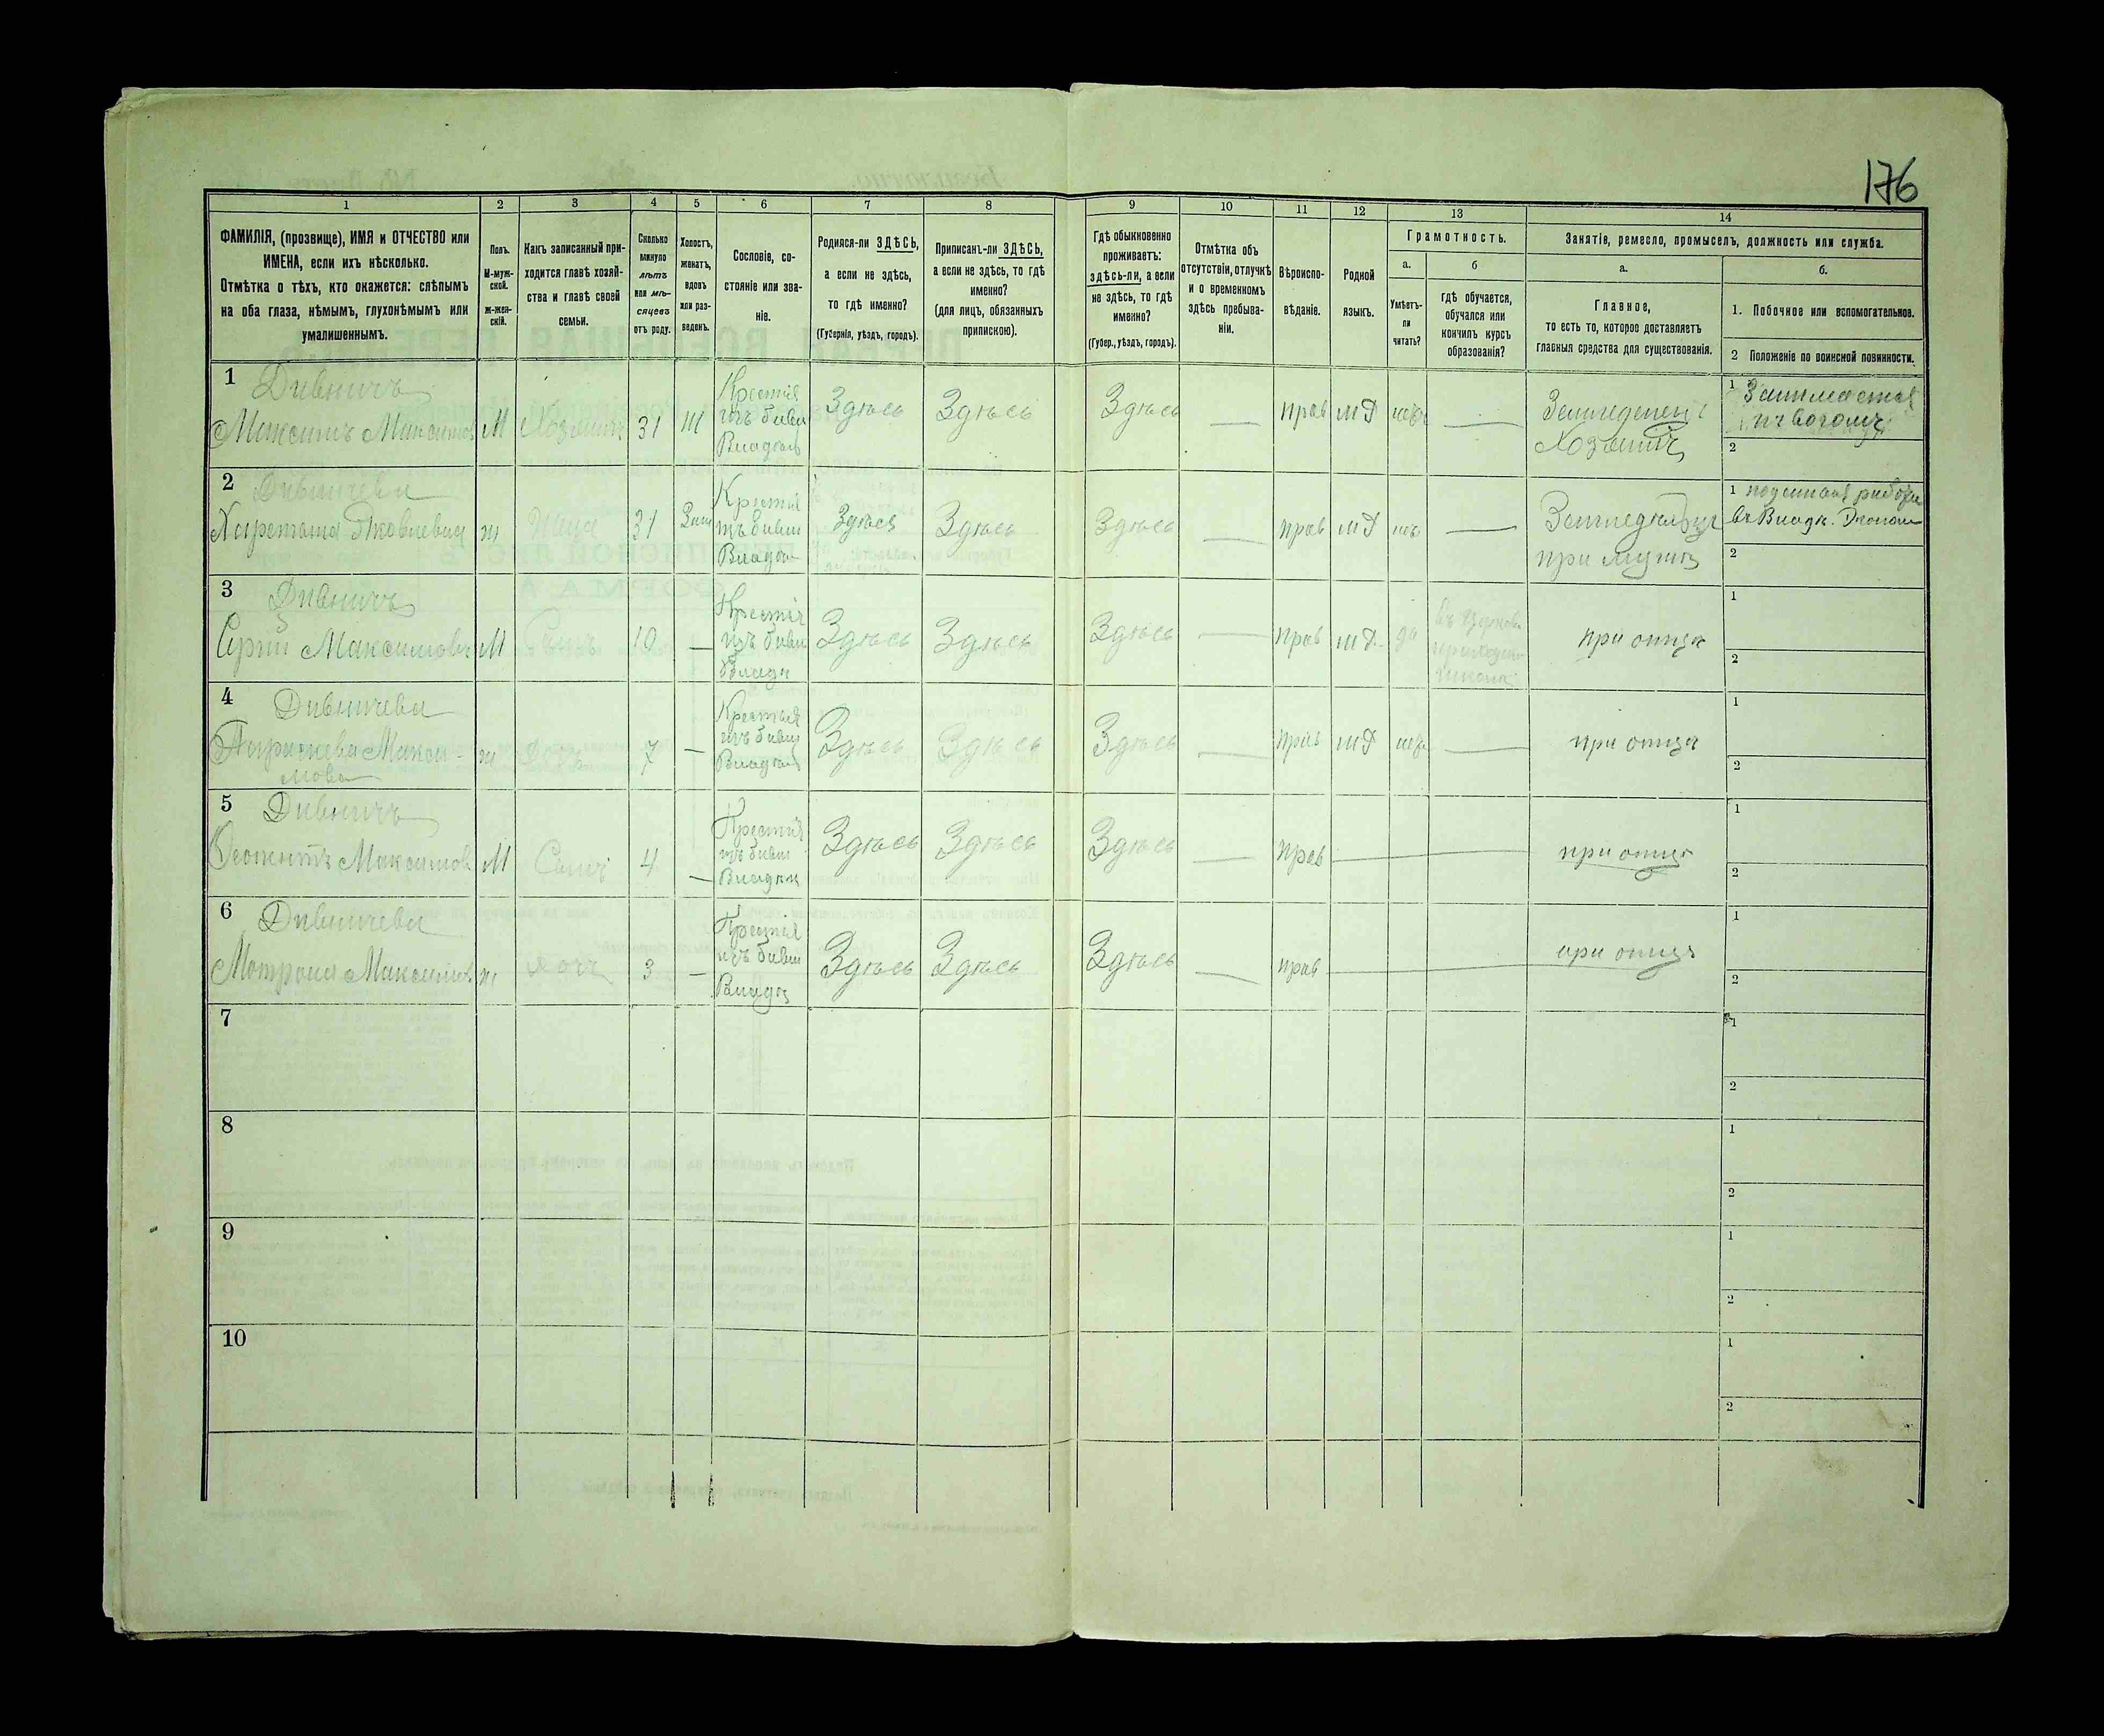 176
1
2
3
4
5
6
7
8
9
10
11
12
13
14
ФАМИЛІЯ, (прозвище), ИМЯ и ОТЧЕСТВО или
ИМЕНА, если ихъ нѣсколько.
Отмѣтка о тѣхъ, кто окажется: слѣпымъ
на оба глаза, нѣмымъ, глухонѣмымъ или
умалишеннымъ.
Полъ.
М-муж-
ской.
ж-жен-
скій.
Какъ записанный при-
ходится главѣ хозяй-
ства и главѣ своей
семьи.
Сколько
минуло
лѣтъ
или мѣ-
сяцевъ
отъ роду.
Холостъ,
женатъ,
вдовъ
или раз-
веденъ.
Сословіе, со-
стояніе или зва-
ніе.
Родился-ли ЗДѢСЬ,
а если не здѣсь,
то гдѣ именно?
(Губернія, уѣздъ, городъ).
Приписанъ-ли ЗДѢСЬ,
а если не здѣсь, то гдѣ
именно?
(для лицъ, обязанныхъ
припискою).
Гдѣ обыкновенно
проживаетъ:
здѣсь-ли, а если
не здѣсь, то гдѣ
именно?
(Губер., уѣздъ, городъ).
Отмѣтка объ
отсутствіи, отлучкѣ
и о временномъ
здѣсь пребыва-
ніи.
Вѣроиспо-
вѣданіе.
Родной
языкъ.
Грамотность.
а.
Умѣетъ-
ли
читать?
б
гдѣ обучается,
обучался или
кончилъ курсъ
образованія?
Занятіе, ремесло, промыселъ, должность или служба.
а.
Главное,
то есть то, которое доставляетъ
главныя средства для существованія.
б.
1. Побочное или вспомогательное.
2 Положеніе по воинской повинности.
1
Дивничъ
Максимъ Максимов М Хозяинъ 31 Ж
Крестья
изъ бывш
Владѣл
Здѣсь Здѣсь Здѣсь — прав МР нѣт —
Земледелецъ
Хозяинъ
1
2
2
Дивничева
Яковлевна ж Жена 31 Зам
Крестья
изъ бывш
Владѣ
Здѣсь Здѣсь Здѣсь — прав МР нѣ —
Земледѣлецъ
при мужѣ
1 поденная работа
въ Владѣ. Эконом
2
3
Дивничъ
Сергій Максимовъ М Сынъ 10 —
Крестья
изъ бывш
Владѣ
Здѣсь Здѣсь Здѣсь — прав МР да
Въ церков.
приходск
школѣ
при отцѣ
1
2
4
Дивничева
Параскева Макси-
мова
ж Дочь 7 —
Крестья
изъ бывш
Владѣл
Здѣсь Здѣсь Здѣсь — прав МР нѣт —
при отцѣ
1
2
5
Дивничъ
Максимов М Сынъ 4 —
Крестья
изъ бывш
Владѣл
Здѣсь Здѣсь Здѣсь — прав —
при отцѣ
1
2
6
Дивничева
Мотрона Максимов ж Дочь 3 —
Крестья
изъ бывш
Владѣ
Здѣсь Здѣсь Здѣсь — прав —
при отцѣ
1
2
7
1
2
8
1
2
9
1
2
10
1
2